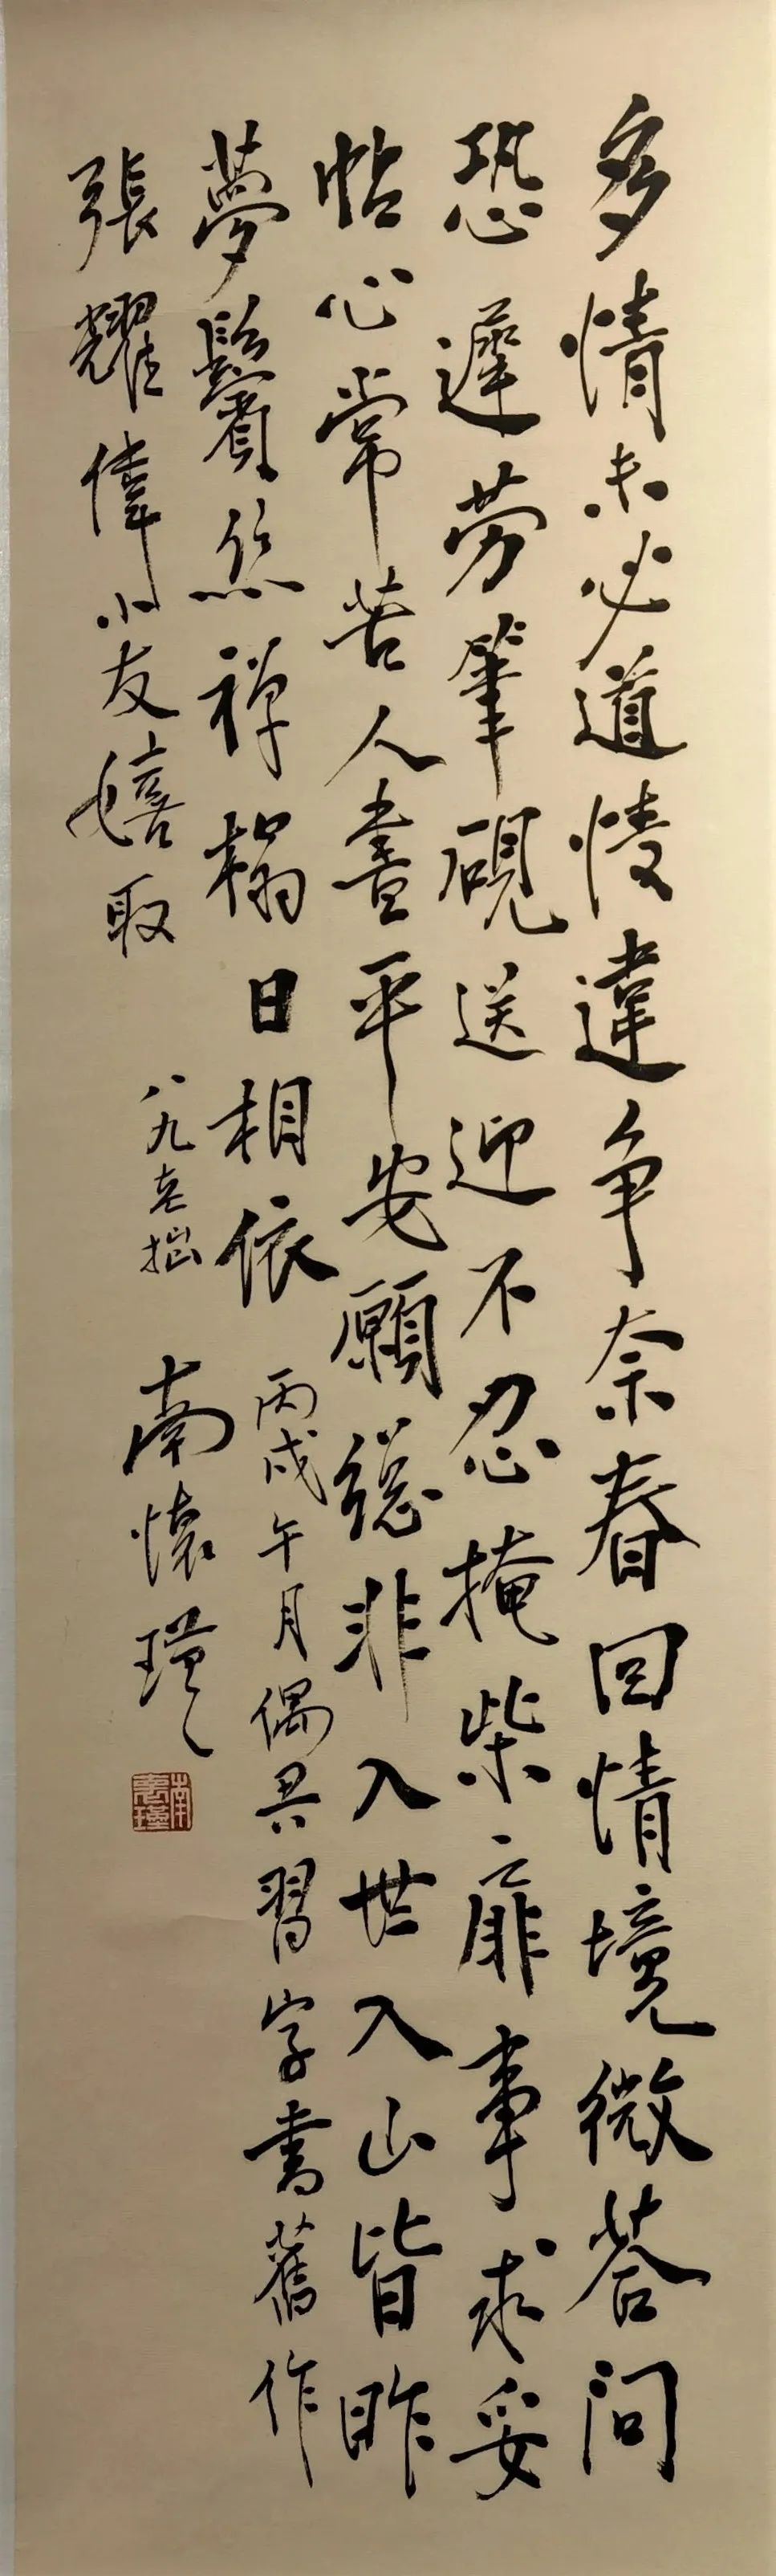 多情未必道違爭奈春回情境微荅問
恐遲劳筆硯送迎不忍掩柴扉事求妥
帖心常苦人盡平安願總非入世入山皆昨
夢鬢絲禪榻日相依 丙戌午月偶習字書舊作
張耀偉小友嬉取
八九老拙 南懷瑾
南懷瑾